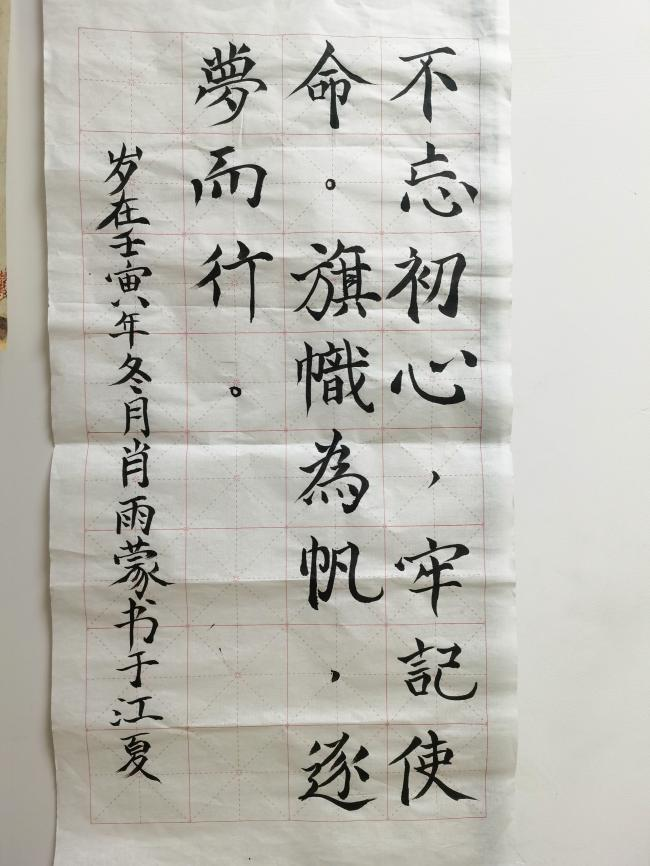 不忘初心，牢記使
命。旗幟為帆，逐
夢而行。
岁在壬寅年冬月肖雨蒙书于江夏